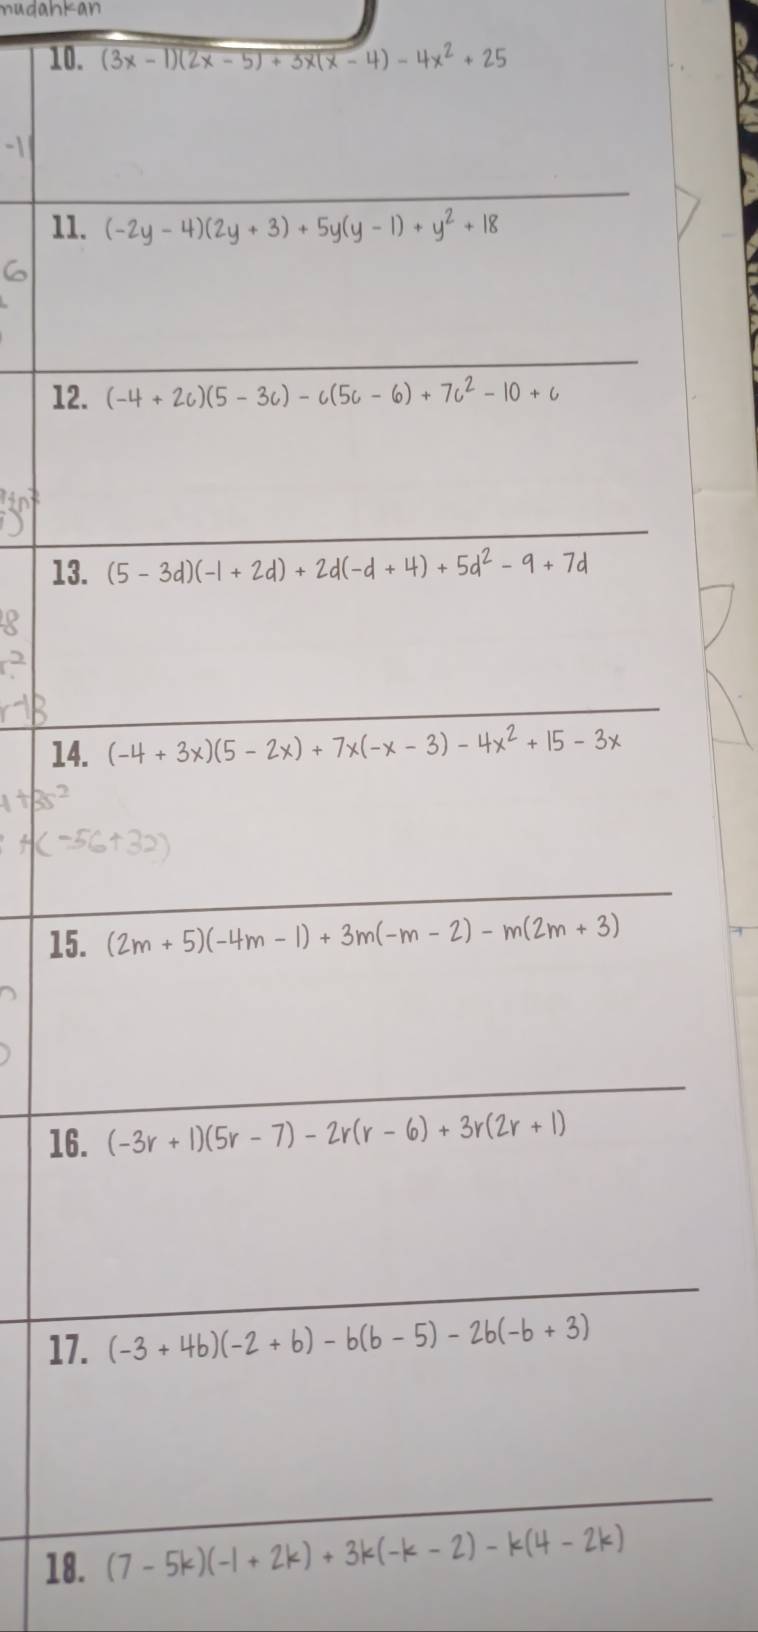 mudahkan
10. (3x - 1)(2x - 5) + 3x(x - 4) - 4x² + 25
-11
11. (-2y - 4)(2y + 3) + 5y(y - 1) + y² + 18
6
12. (-4 + 2c)(5 - 3c) - c(5c - 6) + 7c² - 10 + c
13. (5 - 3d)(-1 + 2d) + 2d(-d + 4) + 5d² - 9 + 7d
28
r²
r-13
14. (-4 + 3x)(5 - 2x) + 7x(-x - 3) - 4x² + 15 - 3x
+35²
+(-56+32)
15. (2m + 5)(-4m - 1) + 3m(-m - 2) - m(2m + 3)
16. (-3r + 1)(5r - 7) - 2r(r - 6) + 3r(2r + 1)
17. (-3 + 4b)(-2 + b) - b(b - 5) - 2b(-b + 3)
18. (7 - 5k)(-1 + 2k) + 3k(-k - 2) - k(4 - 2k)